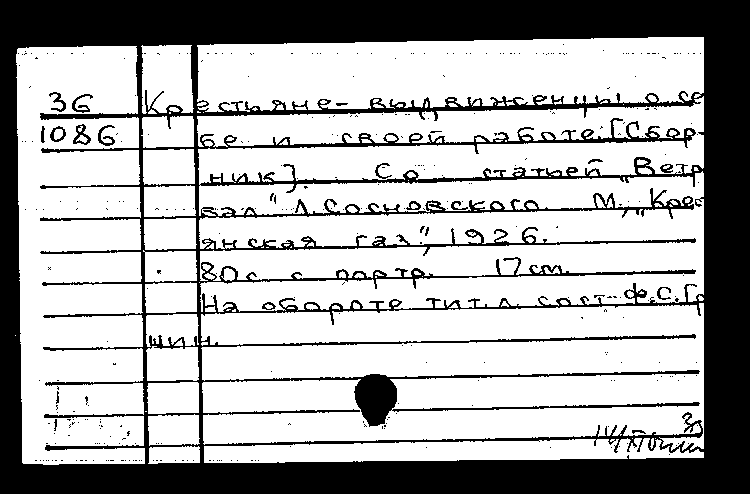 36 Крестьяне-выдвиженцы о се
1086 бе и своей работе. [Сбор-
ник]. Со статьей „Ветр
вал" Л. Сосновского. М., „Крес
янская газ", 1926.
80 с. с портр. 17 см.
На обороте тит. л. сост. Ф. С. Гр
шин.